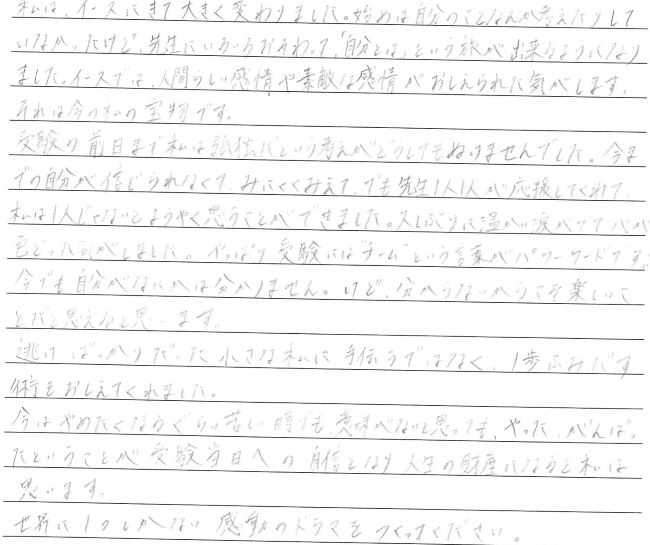 私は、イースにきて大きく変わりました。始めは自分のことなんか考えたりして
いなかったけど、先生にいろいろおそわって、「自分とは」という旅が出来るようになり
ました。イースでは、人間らしい感情や素敵な感情がおしえられた気がします。
それは今の私の宝物です。
受験の前日まで私は孤独だという考えがどうしてもぬけませんでした。今ま
での自分が信じられなくて、みにくくみえて、でも先生1人1人が応援してくれて、
私は1人じゃないとようやく思うことができました。久しぶりに温かい涙がでて心が
色どった気がしました。やっぱり受験には"チーム"という言葉がパワーワードです。
今でも自分がなにかは分かりません。けど、分からないからこそ楽しいこ
とだと思えると思います。
逃げばっかりだった小さな私に手伝うではなく、1歩ふみだす
術をおしえてくれました。
今はやめたくなるぐらい苦しい時でも、意味がないと思っても、やった、がんばっ
たということが受験当日への自信となり人生の財産になると私は
思います。
世界に1つしかない感動のドラマをつくってください。